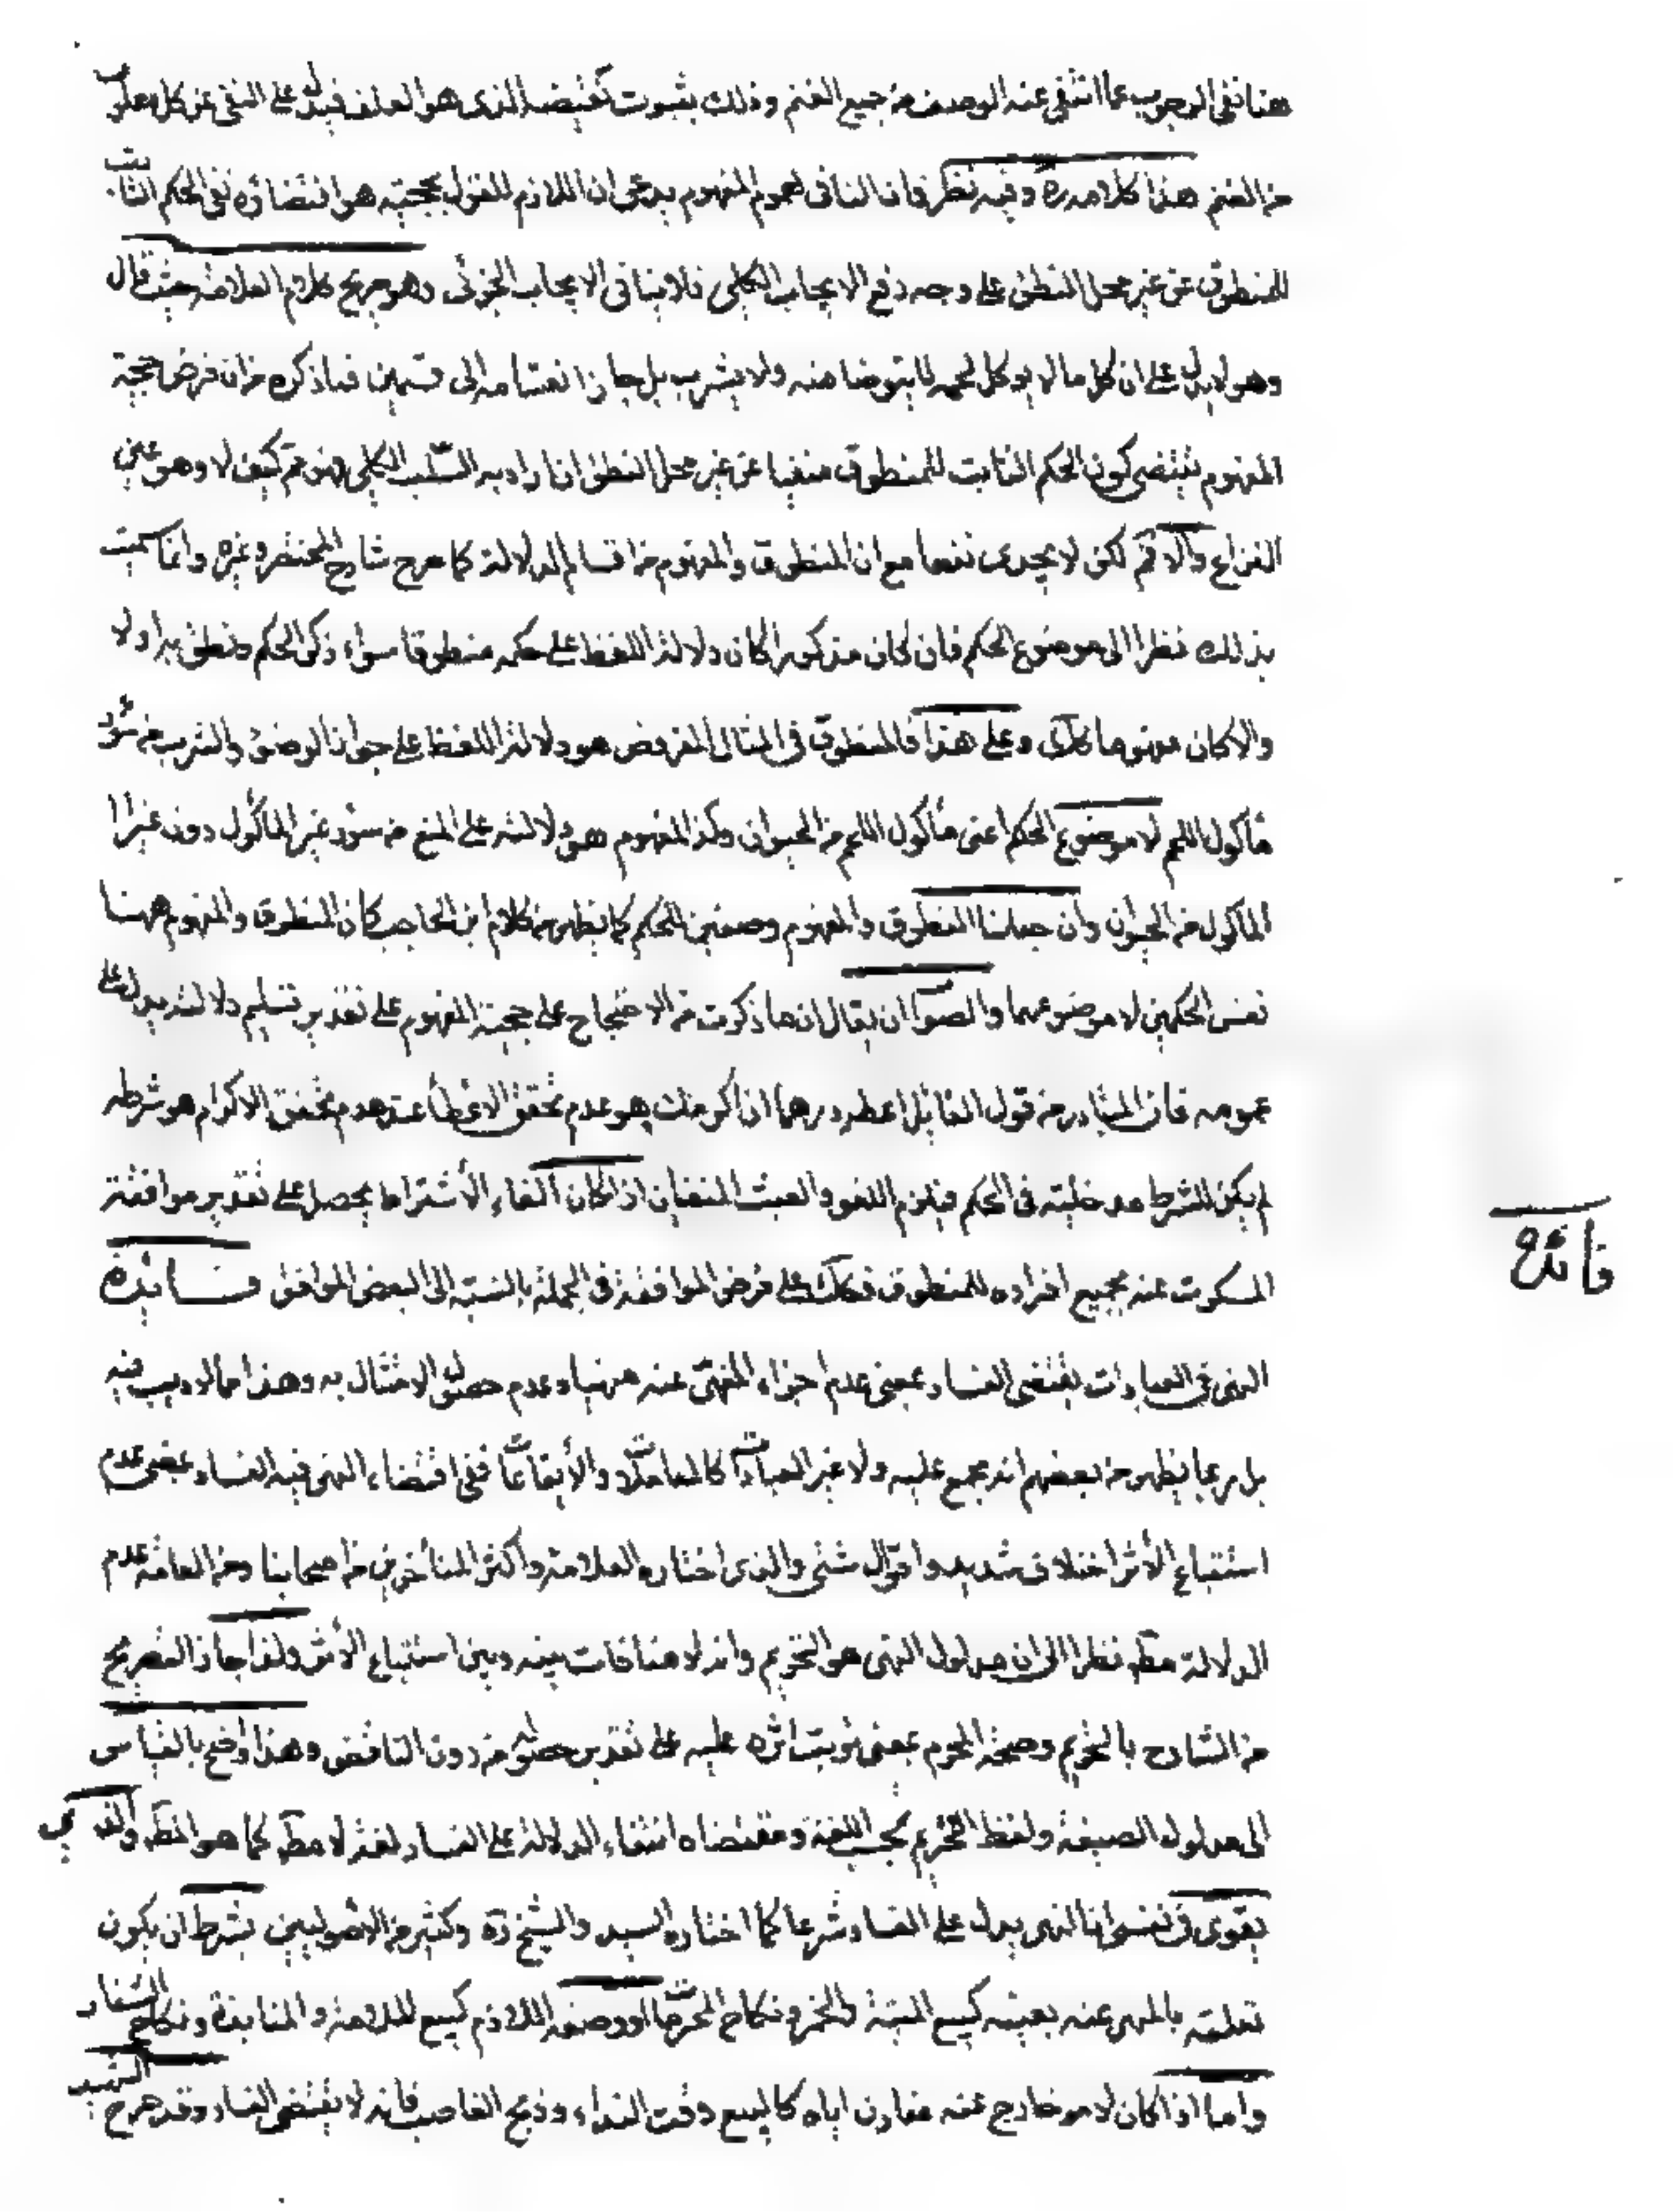 هنا نفى الوجوب عما انتفى عنه الوصف من جميع الغنم وذلك بثبوت نقيضه الذى هو العلف فيدل على النفى عن كل معلوف
من الغنم هذا كلامه ره وفيه نظر فان النافى لعموم المفهوم يدعى ان اللازم للقول بحجيته هو اقتضاؤه نفى الحكم الثابت
للمنطوق عن غير محل النطق على وجه رفع الايجاب الكلى فلا ينافى الايجاب الجزئى وهو صريح كلام العلامة حيث قال
وهو لا يدل على ان كل ما لا يؤكل لحمه لا يتوضا منه ولا يشرب بل جاز انقسامه الى قسمين فما ذكره من ان فرض حجية
المفهوم يقتضى كون الحكم الثابت للمنطوق منفيا عن غير محل النطق ان اراد به السلب الكلى فهو مم كيف لا وهو عين
النزاع والا فم لكن لا يجدى نفعا مع ان المنطوق والمفهوم من اقسام الدلالة كما صرح شارح المختصر وغيره وانما سميت
بذلك نظرا الى موضوع الحكم فان كان مذكورا كان دلالة اللفظ على حكمه منطوقا سواء ذكر الحكم ونطق به اولا
والا كان مفهوما كذلك وعلى هذا فالمنطوق فى المثال المفروض هو دلالة اللفظ على جواز الوضوء والشرب من سؤر
مأكول اللحم لا موضوع الحكم اعنى مأكول اللحم من الحيوان وكذا المفهوم هو دلالته على المنع من سؤر غير المأكول دون غير
المأكول من الحيوان وان جعلنا المنطوق والمفهوم وصفين للحكم كما يظهر من كلام ابن الحاجب كان المنطوق والمفهوم ههنا
نفس الحكمين لا موضوعهما والصواب ان يقال ان ما ذكرت من الاحتجاج على حجية المفهوم على تقدير تسليم دلالته يدل على
عمومه فان المتبادر من قول القائل اعطه درهما ان اكرمك هو عدم تحقق الاعطاء عند عدم تحقق الاكرام هو شرطه
لم يكن للشرط مدخلية فى الحكم فيلزم اللغو والعبث المنفيان اذا كان الغاء الأشتراط يحصل على تقدير موافقة
المسكوت عنه بجميع افراده للمنطوق فكذلك على فرض الموافقة فى الجملة بالنسبة الى البعض الموافق فائدة
النهى فى العبادات يقتضى الفساد بمعنى عدم اجزاء المنهى عنه منها وعدم حصول الامتثال به وهذا مما لا ريب فيه
بل ربما يظهر من بعضهم انه مجمع عليه ولا غير العبادات كالمعاملات والأيقاعات ففى اقتضاء النهى فيه الفساد بمعنى عدم
استتباع الأثر اختلاف شديد واقوال شتى والذى اختاره العلامة واكثر المتأخرين من اصحابنا ومن العامة عدم
الدلالة مطلقا نظرا الى ان مدلول النهى هو التحريم وانه لا منافات بينه وبين استتباع الأثر ولذا جاز التصريح
من الشارح بالتحريم وصحة المحرم بمعنى ترتب اثره عليه على تقدير حصوله من دون التناقض وهذا واضح بالقياس
الى مدلول الصيغة ولفظ التحريم بحسب اللغة ومقتضاه انتفاء الدلالة على الفساد لغة لا مطلقا كما هو المط والذى
يقوى فى نفسى ان النهى يدل على الفساد شرعا كما اختاره السيد والشيخ ره وكثير من الاصوليين بشرط ان يكون
تعلقه بالمنهى عنه بعينه كبيع الميتة والخمر ونكاح المحرمات او وصفه اللازم كبيع الملامسة والمنابذة ونكاح الشغار
واما اذا كان لامر خارج عنه مقارن اياه كالبيع وقت النداء وذبح الغاصب فانه لا يقتضى الفساد وقد صرح السيد
فائدة